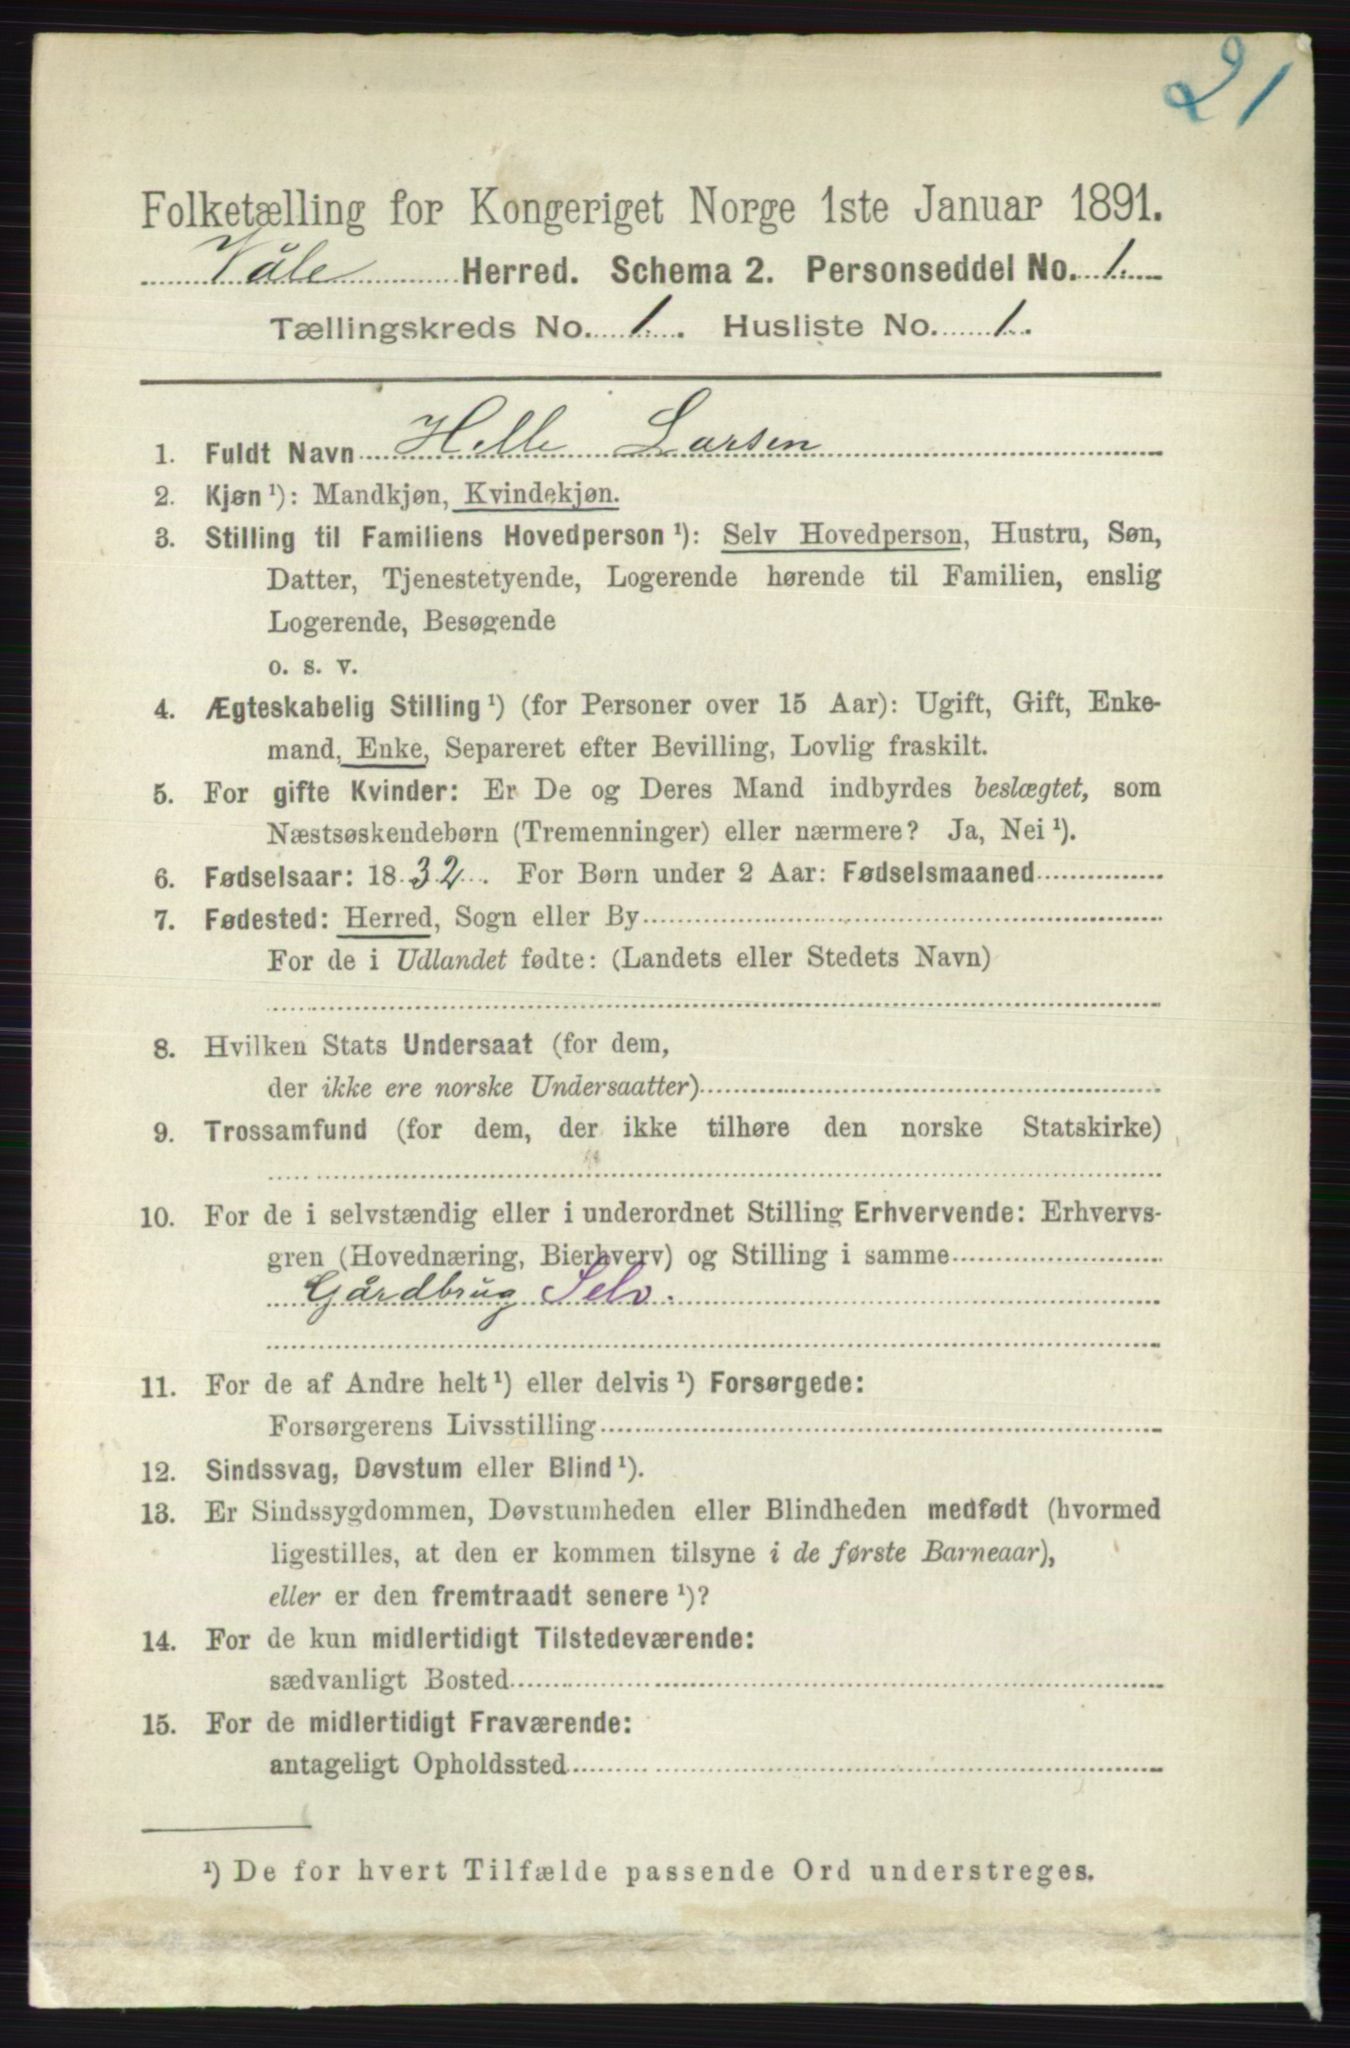 21
Folketælling for Kongeriget Norge 1ste Januar 1891.
Våle Herred. Schema 2. Personseddel No. 1.
Tællingskreds No. 1. Husliste No. 1.
1. Fuldt Navn Helle Larsen
2. Kjøn ¹): Mandkjøn, Kvindekjøn.
3. Stilling til Familiens Hovedperson ¹): Selv Hovedperson, Hustru, Søn,
Datter, Tjenestetyende, Logerende hørende til Familien, enslig
Logerende, Besøgende
o. s. v.
4. Ægteskabelig Stilling ¹) (for Personer over 15 Aar): Ugift, Gift, Enke-
mand, Enke, Separeret efter Bevilling, Lovlig fraskilt.
5. For gifte Kvinder: Er De og Deres Mand indbyrdes beslægtet, som
Næstsøskendebørn (Tremenninger) eller nærmere? Ja, Nei ¹).
6. Fødselsaar: 1832. For Børn under 2 Aar: Fødselsmaaned
7. Fødested: Herred, Sogn eller By
For de i Udlandet fødte: (Landets eller Stedets Navn)
8. Hvilken Stats Undersaat (for dem,
der ikke ere norske Undersaatter)
9. Trossamfund (for dem, der ikke tilhøre den norske Statskirke)
10. For de i selvstændig eller i underordnet Stilling Erhvervende: Erhvervs-
gren (Hovednæring, Bierhverv) og Stilling i samme
Gårdbrug Selv.
11. For de af Andre helt ¹) eller delvis ¹) Forsørgede:
Forsørgerens Livsstilling
12. Sindssvag, Døvstum eller Blind ¹).
13. Er Sindssygdommen, Døvstumheden eller Blindheden medfødt (hvormed
ligestilles, at den er kommen tilsyne i de første Barneaar),
eller er den fremtraadt senere ¹)?
14. For de kun midlertidigt Tilstedeværende:
sædvanligt Bosted
15. For de midlertidigt Fraværende:
antageligt Opholdssted
¹) De for hvert Tilfælde passende Ord understreges.